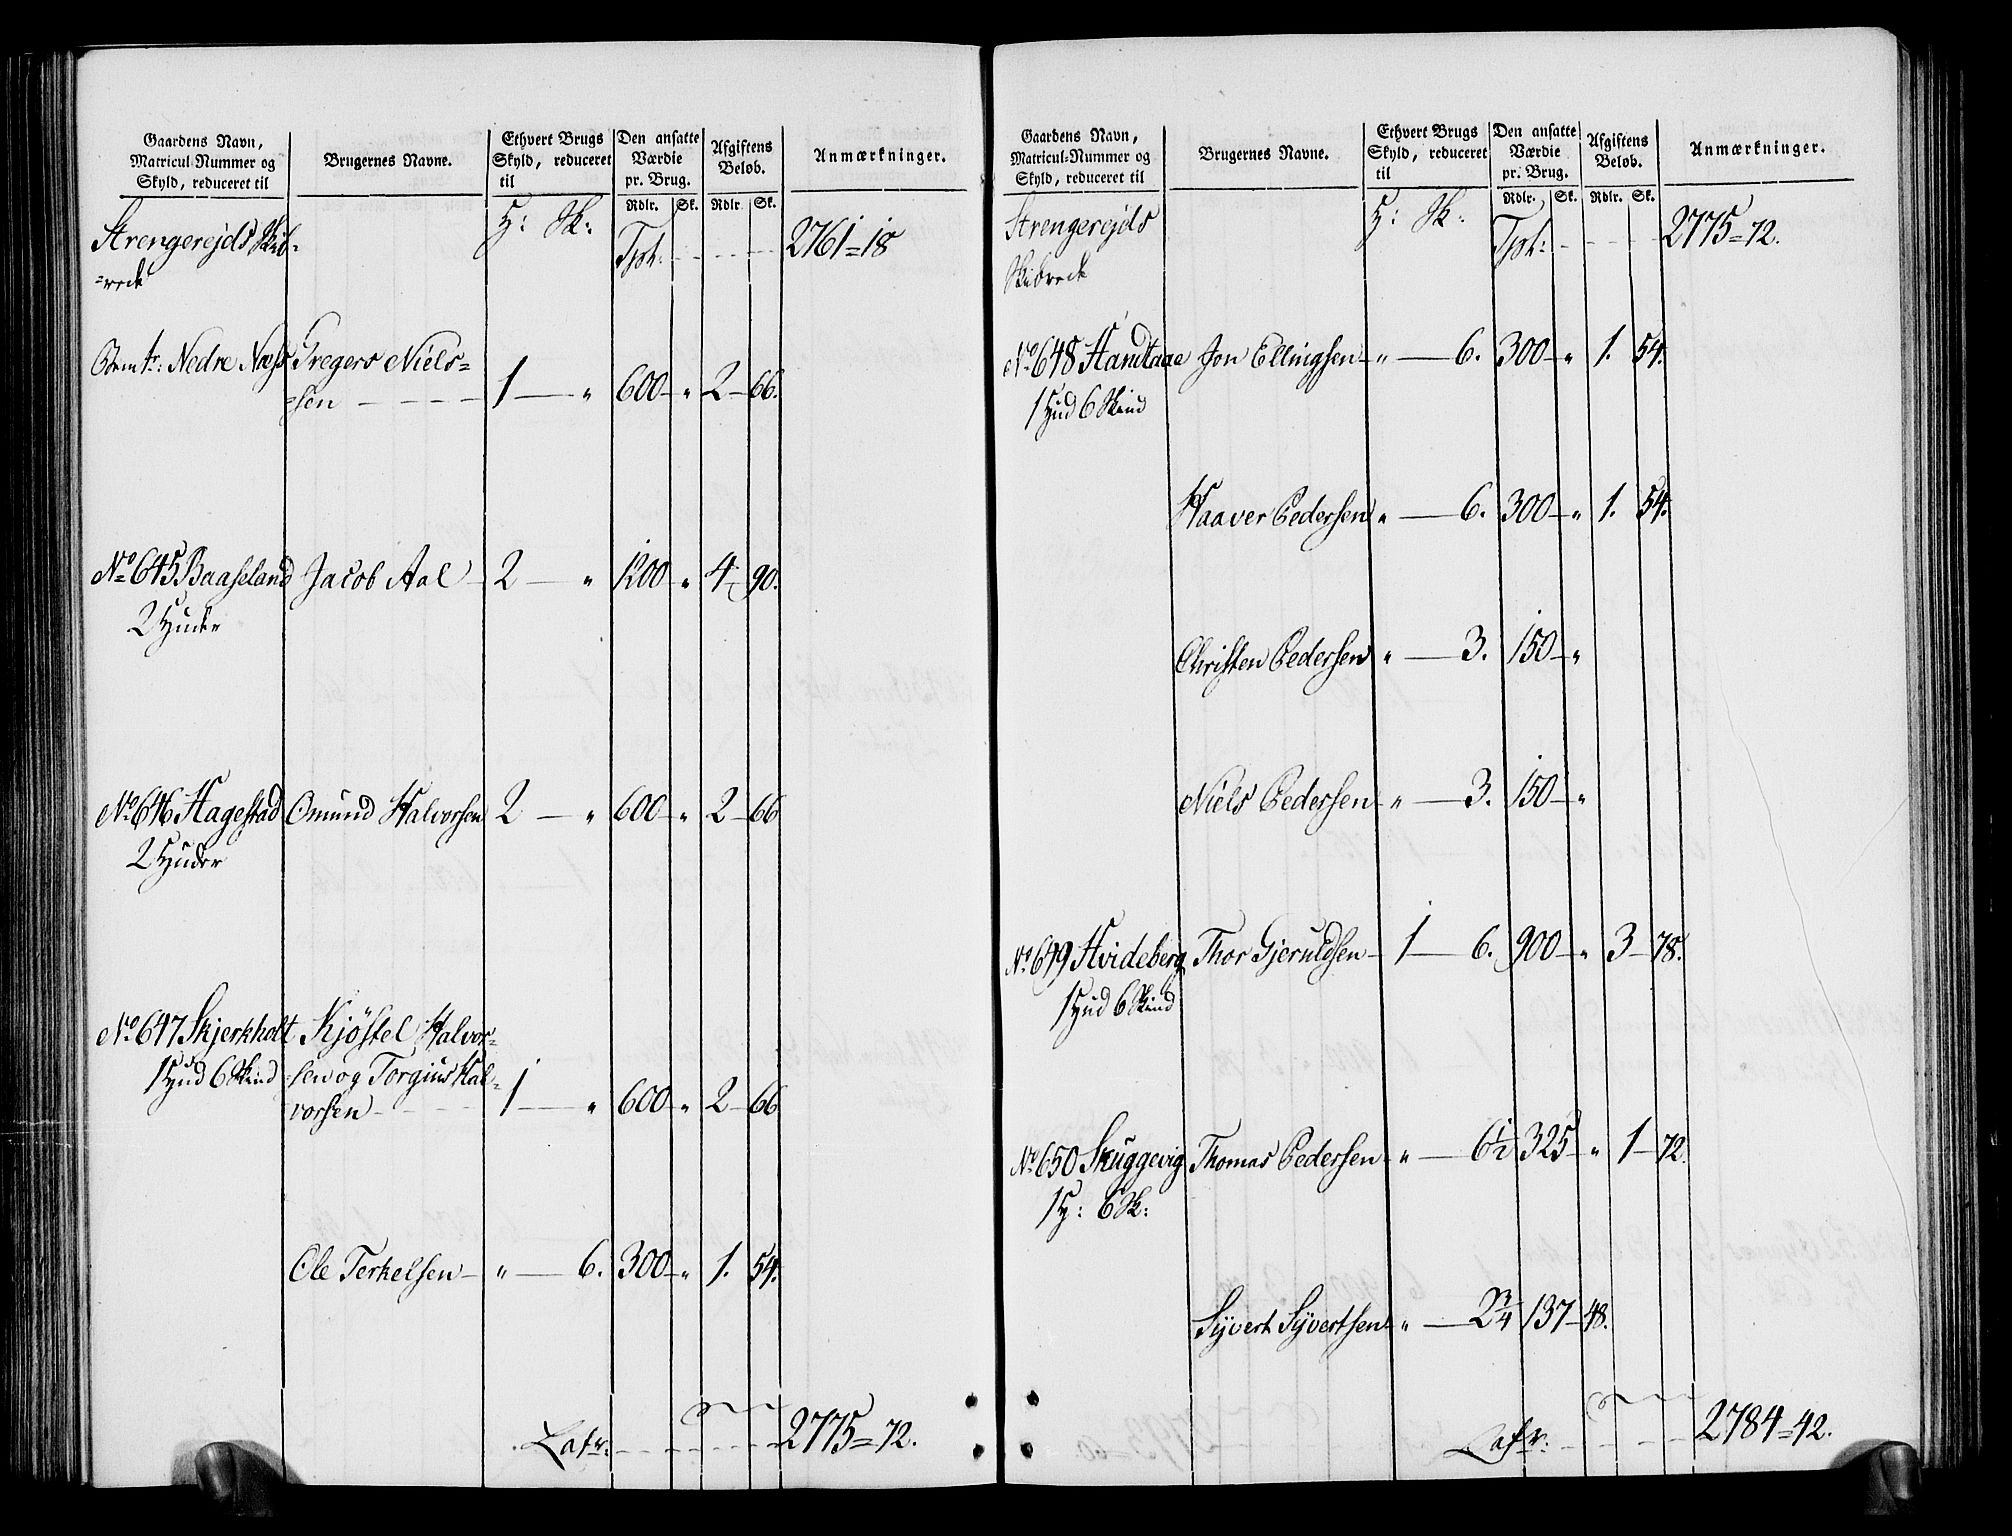 Gaardens Navn,
Matricul-Nummer og
Skyld, reduceret til
Brugernes Navne.
Ethvert Brugs
Skyld, reduceret
til
Den ansatte
Værdie
pr. Brug.
Afgiftens
Beløb.
Anmærkninger.
Rdlr. Sk. Rdlr. Sk.
Strengerejds Skib-
=rede
H: Sk:
Tpt: 2761=18
Nedre Næss Gregers Niels=
=sen 1 — " 600 — " 2 — 66.
No 645 Baaseland Jacob Aal — 2 — " 1200 — " 4 — 90.
2 Huder
No 646 Hagestad Omund Halvorsen 2 — " 600 — " 2 — 66
2 Huder
No 647 Skjerkholt Kjöstel Halvor=
1 Hud 6 Skind =sen og Torgius Hal=
vorsen 1 — " 600 — " 2 — 66
Ole Terkelsen — " — 6. 300 — " 1. 54.
Latr: 2775=72.
Gaardens Navn,
Matricul-Nummer og
Skyld, reduceret til
Brugernes Navne.
Ethvert Brugs
Skyld, reduceret
til
Den ansatte
Værdie
pr. Brug.
Afgiftens
Beløb.
Anmærkninger.
Rdlr. Sk. Rdlr. Sk.
Strengerejds
Skibrede
H: Sk:
Tpt: 2775=72.
No 648 Handtaae Jon Ellingsen — " — 6. 300 — " 1. 54.
1 Hud 6 Skind
Haaver Pedersen " — 6. 300 — " 1. 54.
Christen Pedersen " — 3. 150 — "
Niels Pedersen — " — 3. 150 — "
No 649 Hvideberg Thor Gjeruldsen — 1 — 6. 900 — " 3 — 78.
1 Hud 6 Skind
No 650 Skuggevig Thomas Pedersen — " — 6½ 325 — " 1 — 72.
1 H: 6 Sk:
Syvert Syvertsen " — 2¾ 137 — 48.
Latr: 2784=42.